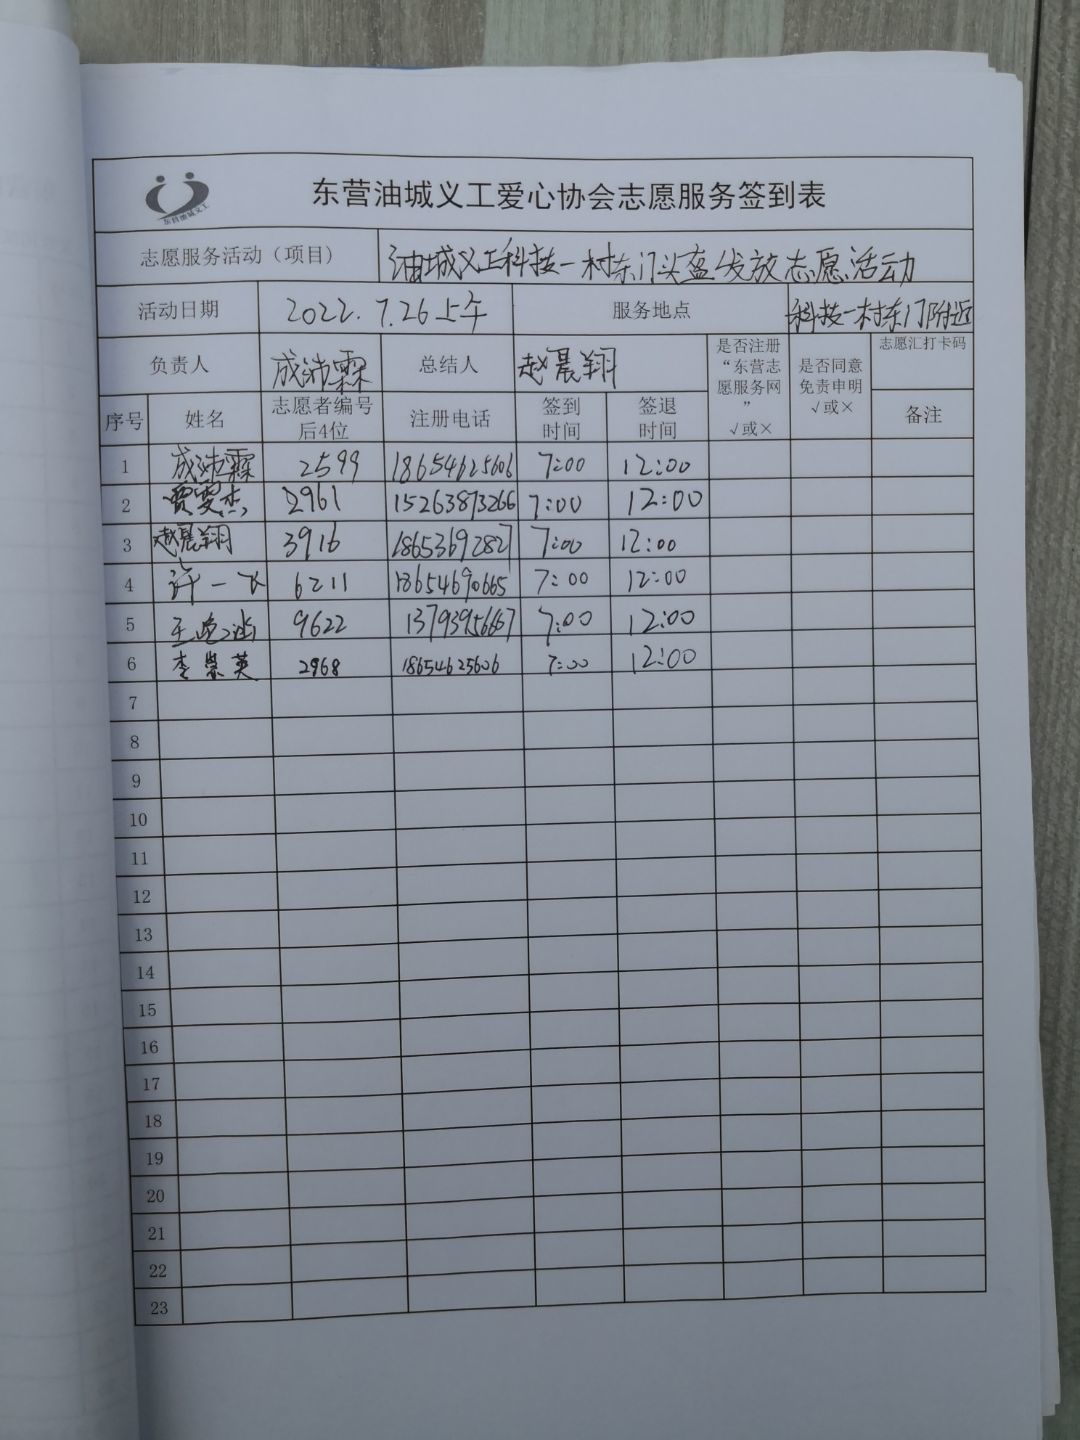 东营油城义工
东营油城义工爱心协会志愿服务签到表
志愿服务活动（项目） 油城义工科技一村东门头盔发放志愿活动
活动日期 2022.7.26上午 服务地点 科技一村东门附近
负责人 成沛霖 总结人 赵晨翔 是否注册“东营志愿服务网” √或× 是否同意免责申明 √或× 志愿汇打卡码
序号 姓名 志愿者编号后4位 注册电话 签到时间 签退时间 备注
1 成沛霖 2599 18654625606 7:00 12:00
2 贾雯杰 2961 15263873266 7:00 12:00
3 赵晨翔 3916 18653692827 7:00 12:00
4 许一飞 6211 18654690665 7:00 12:00
5 王 9622 7:00 12:00
6 李崇英 2968 18654625606 7:00 12:00
7
8
9
10
11
12
13
14
15
16
17
18
19
20
21
22
23